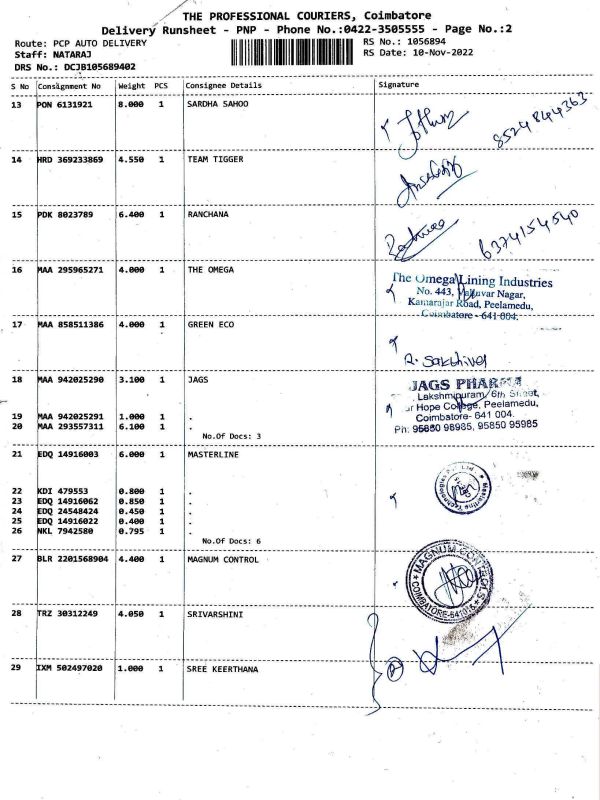 THE PROFESSIONAL COURIERS, Coimbatore
Delivery Runsheet - PNP - Phone No.:0422-3505555 - Page No.:2
Route: PCP AUTO DELIVERY
RS No.: 1056894
Staff: NATARAJ
RS Date: 10-Nov-2022
DRS No.: DCJB105689402
S No Consignment No Weight PCS Consignee Details Signature
13 PON 6131921 8.000 1 SARDHA SAHOO
8524844363
14 HRD 369233869 4.550 1 TEAM TIGGER
15 PDK 8023789 6.400 1 RANCHANA
6374154540
16 MAA 295965271 4.000 1 THE OMEGA
The Omega Lining Industries
No. 443, Valluvar Nagar,
Kamarajar Road, Peelamedu,
Coimbatore - 641 004.
17 MAA 858511386 4.000 1 GREEN ECO
R. Sakthivel
18 MAA 942025290 3.100 1 JAGS
JAGS PHARMA
Lakshmipuram, 6th Street,
Hope College, Peelamedu,
Coimbatore- 641 004.
Ph: 95850 98985, 95850 95985
19 MAA 942025291 1.000 1 .
20 MAA 293557311 6.100 1 .
No.Of Docs: 3
21 EDQ 14916003 6.000 1 MASTERLINE
22 KDI 479553 0.800 1 .
23 EDQ 14916062 0.850 1 .
24 EDQ 24548424 0.450 1 .
25 EDQ 14916022 0.400 1 .
26 NKL 7942580 0.795 1 .
No.Of Docs: 6
27 BLR 2201568904 4.400 1 MAGNUM CONTROL
MAGNUM CONTROLS
COIMBATORE-641016
28 TRZ 30312249 4.050 1 SRIVARSHINI
29 IXM 502497020 1.000 1 SREE KEERTHANA